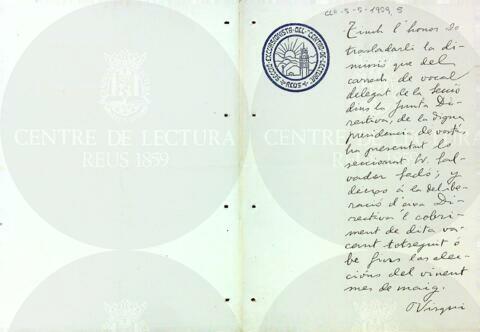 CLR-5-5-1959, 5
SECCIÓ EXCURSIONISTA DEL "CENTRE DE LECTURA"
REUS
CENTRE DE LECTURA
REUS 1859
Tinch l'honor de
trasladarli la di-
misió que del
carrech de vocal
delegat de la Secció
dins la Junta Di-
rectiva, de la digna
presidencia de vosté
ha presentat lo
seccionat Sr. Sal-
vador ; y
deixo á la delibe-
ració d'eixa Di-
rectiva l'cobri-
ment de dita va-
cant totseguit ó
bé fins las elec-
cións del vinent
mes de maig.